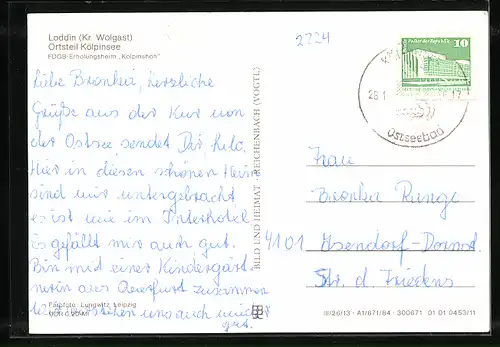 Loddin (Kr. Wolgast)
Ortsteil Kölpinsee
FDGB-Erholungsheim „Kölpinshöh"
2224
Liebe Bronka, herzliche
Grüße aus der Kur von
der Ostsee sendet Dir
Hier in diesen schönen Heim
sind wir untergebracht
es ist wie im Interhotel
Es gefällt mir auch gut.
Bin mit einer Kindergärt-
nerin aus Querfurt zusammen
verstehen uns auch
gut.
Farbfoto: Lungwitz, Leipzig
BILD UND HEIMAT REICHENBACH (VOGTL)
10
Ostseebad
Frau
Bronka Runge
4101 -Dornst.
Str. d. Friedens
III/26/13 · A1/671/84 · 300671 01 01 0453/11